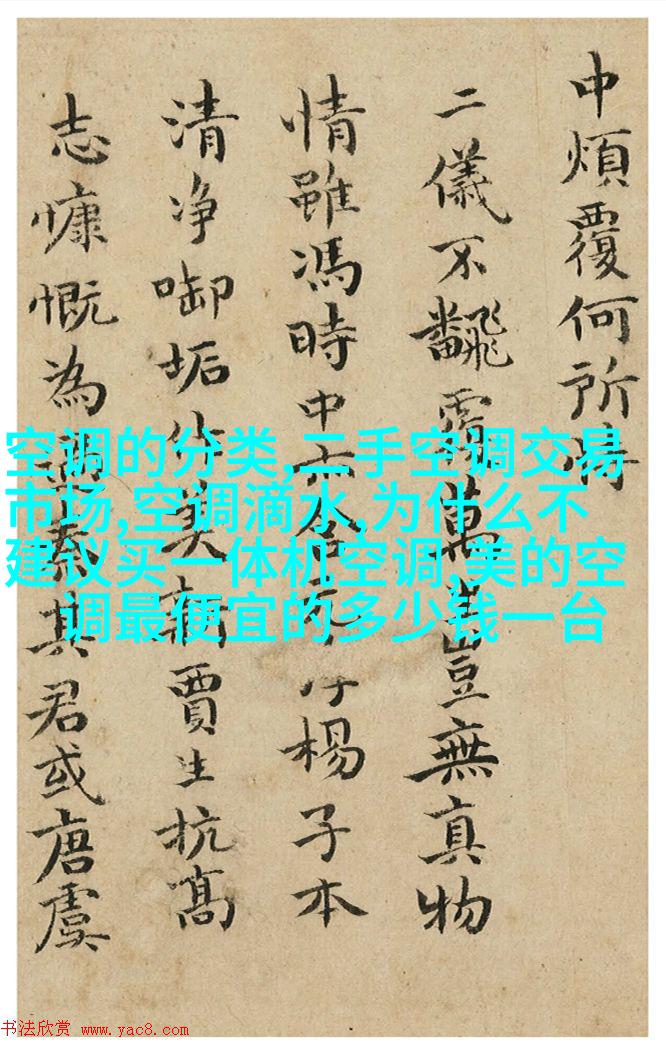 中煩覆何所恃
二儀不翻飛露萬豈無真物
情雖馮時中楊子本
清净啣垢作美新賈生抗高
志慷慨為秦其君或唐虞
空调的分类,二手空调交易
市场,空调滴水,为什么不
建议买一体机空调,美的空
调最便宜的多少钱一台
书法欣赏 www.yac8.com